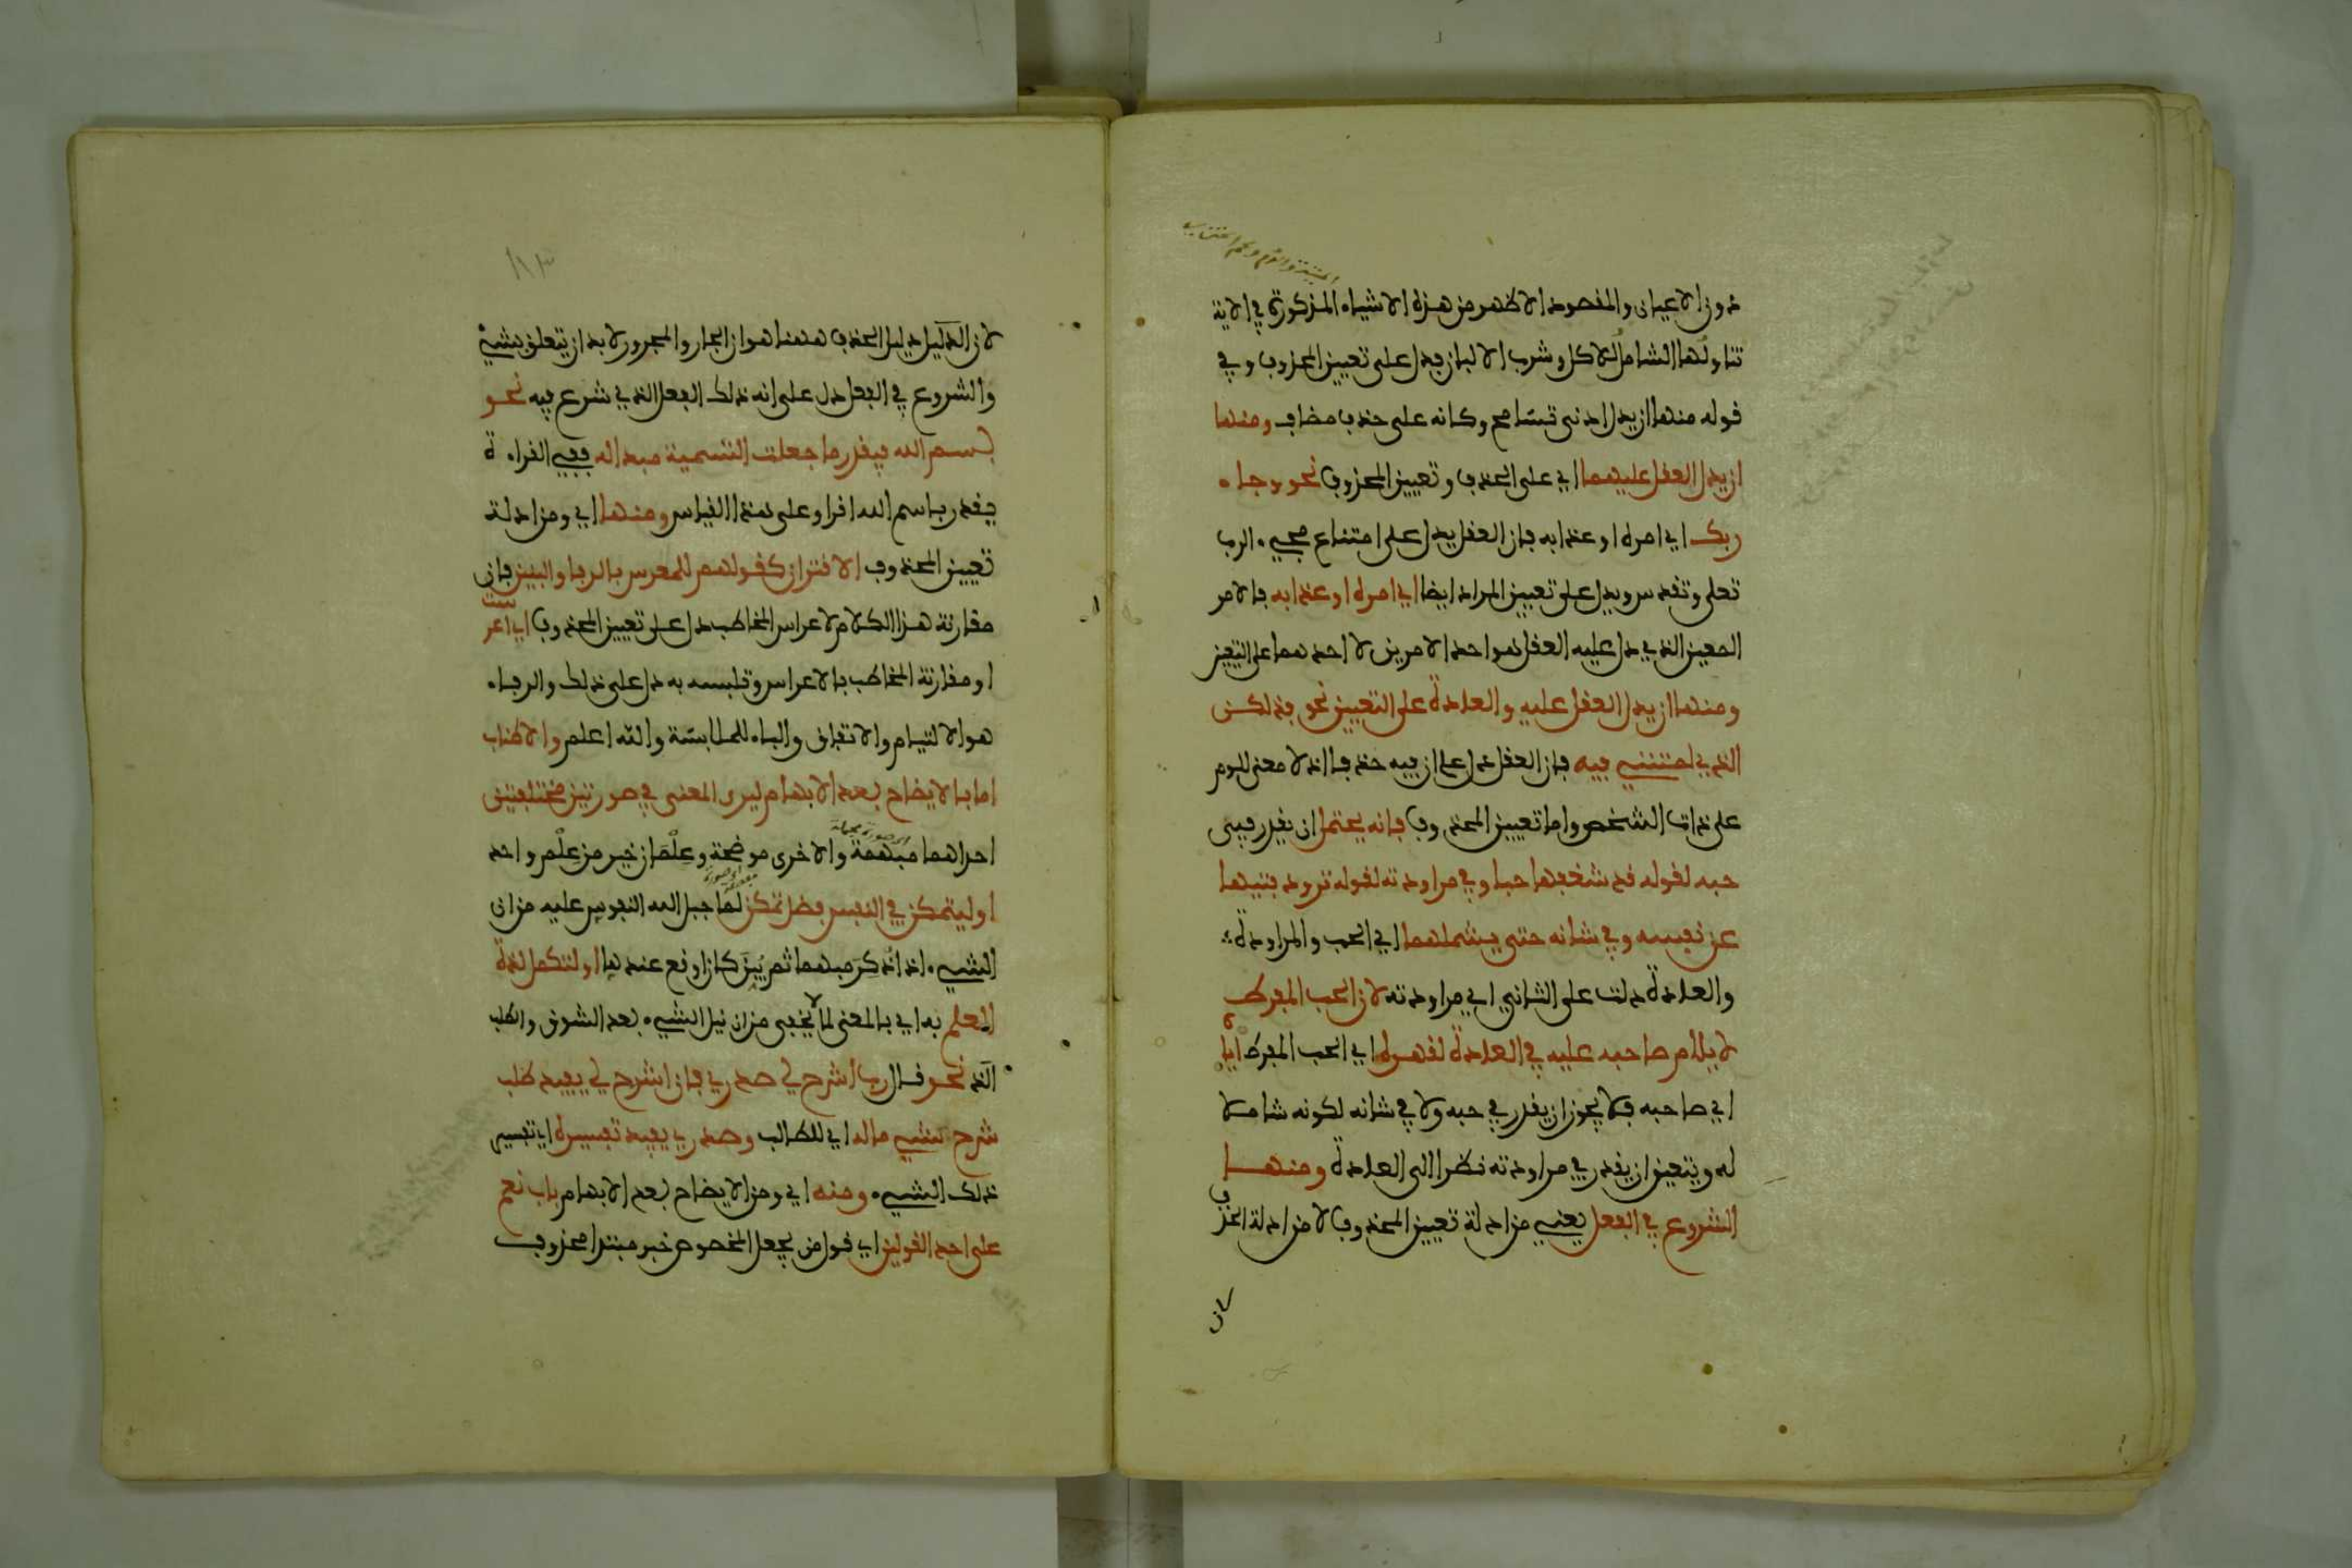 دون الاعيان والمقصود الاظهر من هذه الاشياء المذكورة في الاية
تناولها الشامل للاكل وشرب الالبان فدل على تعيين المحذوف وفي
قوله منها ان يدل ادنى تسامح وكانه على حذف مضاف ومنها
ان يدل العقل عليهما اي على الحذف وتعيين المحذوف نحو وجاء
ربك اي امره او عذابه فان العقل يدل على امتناع مجيء الرب
تعلى وتقدس ويدل على تعيين المراد ايضا اي امره او عذابه فالامر
المعين الذي دل عليه العقل هو احد الامرين لا احدهما على التعيين
ومنها ان يدل العقل عليه والعادة على التعيين نحو فذلكن
الذي لمتنني فيه فان العقل دل على ان فيه حذفا اذ لا معنى للوم
على ذات الشخص واما تعيين المحذوف فانه يحتمل ان يقدر في
حبه لقوله قد شغفها حبا وفي مراودته لقوله تراود فتيها
عن نفسه وفي شانه حتى يشملهما اي الحب والمراودة
والعادة دلت على الثاني اي مراودته لان الحب المفرط
لا يلام صاحبه عليه في العادة لقهره اي الحب المفرط اياه
اي صاحبه فلا يجوز ان يقدر في حبه ولا في شانه لكونه شاملا
له ويتعين ان يقدر في مراودته نظرا الى العادة ومنها
الشروع في الفعل يعني من ادلة تعيين المحذوف لا من ادلة الحذف
لان
١١٣
لان الدليل دليل الحذف ههنا هو ان الجار والمجرور لا بد ان يتعلق بشيء
والشروع في الفعل دل على انه ذلك الفعل الذي شرع فيه نحو
بسم الله فيقدر ما جعلت التسمية مبدا له ففي القراءة
يقدر باسم الله اقرا وعلى هذا القياس ومنها اي ومن ادلة
تعيين المحذوف الاقتران كقولهم للمعرس بالرفا والبنين فان
مقارنة هذا الكلام لاعراس المخاطب دل على تعيين المحذوف اي اعرست
او مقارنة المخاطب بالاعراس وتلبسه به دل على ذلك والرفاء
هو الالتيام والاتفاق والباء للملابسة والله اعلم والاطناب
اما بالايضاح بعد الابهام ليرى المعنى في صورتين مختلفتين
احداهما مبهمة والاخرى موضحة وعلمان خير من علم واحد
او ليتمكن في النفس فضل تمكن لما جبل الله النفوس عليه من ان
الشيء اذا ذكر مبهما ثم بين كان اوقع عندها او لتكمل لذة
العلم به اي بالمعنى لما لا يخفى من ان نيل الشيء بعد الشوق والطلب
الذ نحو قال رب اشرح لي صدري فان اشرح لي يفيد طلب
شرح شيء ما له اي للطالب وصدري يفيد تفسيره اي تفسير
ذلك الشيء ومنه اي ومن الايضاح بعد الابهام باب نعم
على احد القولين اي قول من يجعل المخصوص خبر مبتدا محذوف